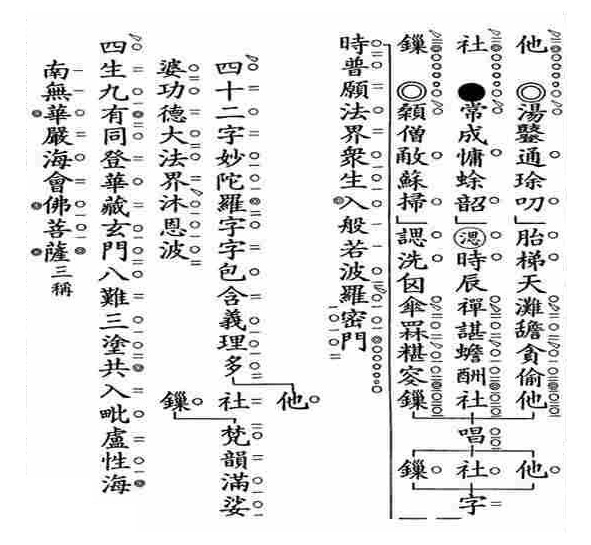 他湯鼕通㻌叨」胎梯天灘貪偷他
社●常成慵蜍韶」時辰禪諶蟾酬社唱
鏁顙僧蘇掃」諰洗囟傘罧糂鏁
他社鏁字
時普願法界衆生入般若波羅密門
四十二字妙陀羅字字包含義理多
他社鏁
梵韻滿娑
婆功德大法界沐恩波
四生九有同登華藏玄門八難三塗共入毗盧性海
南無華嚴海會佛菩薩三稱